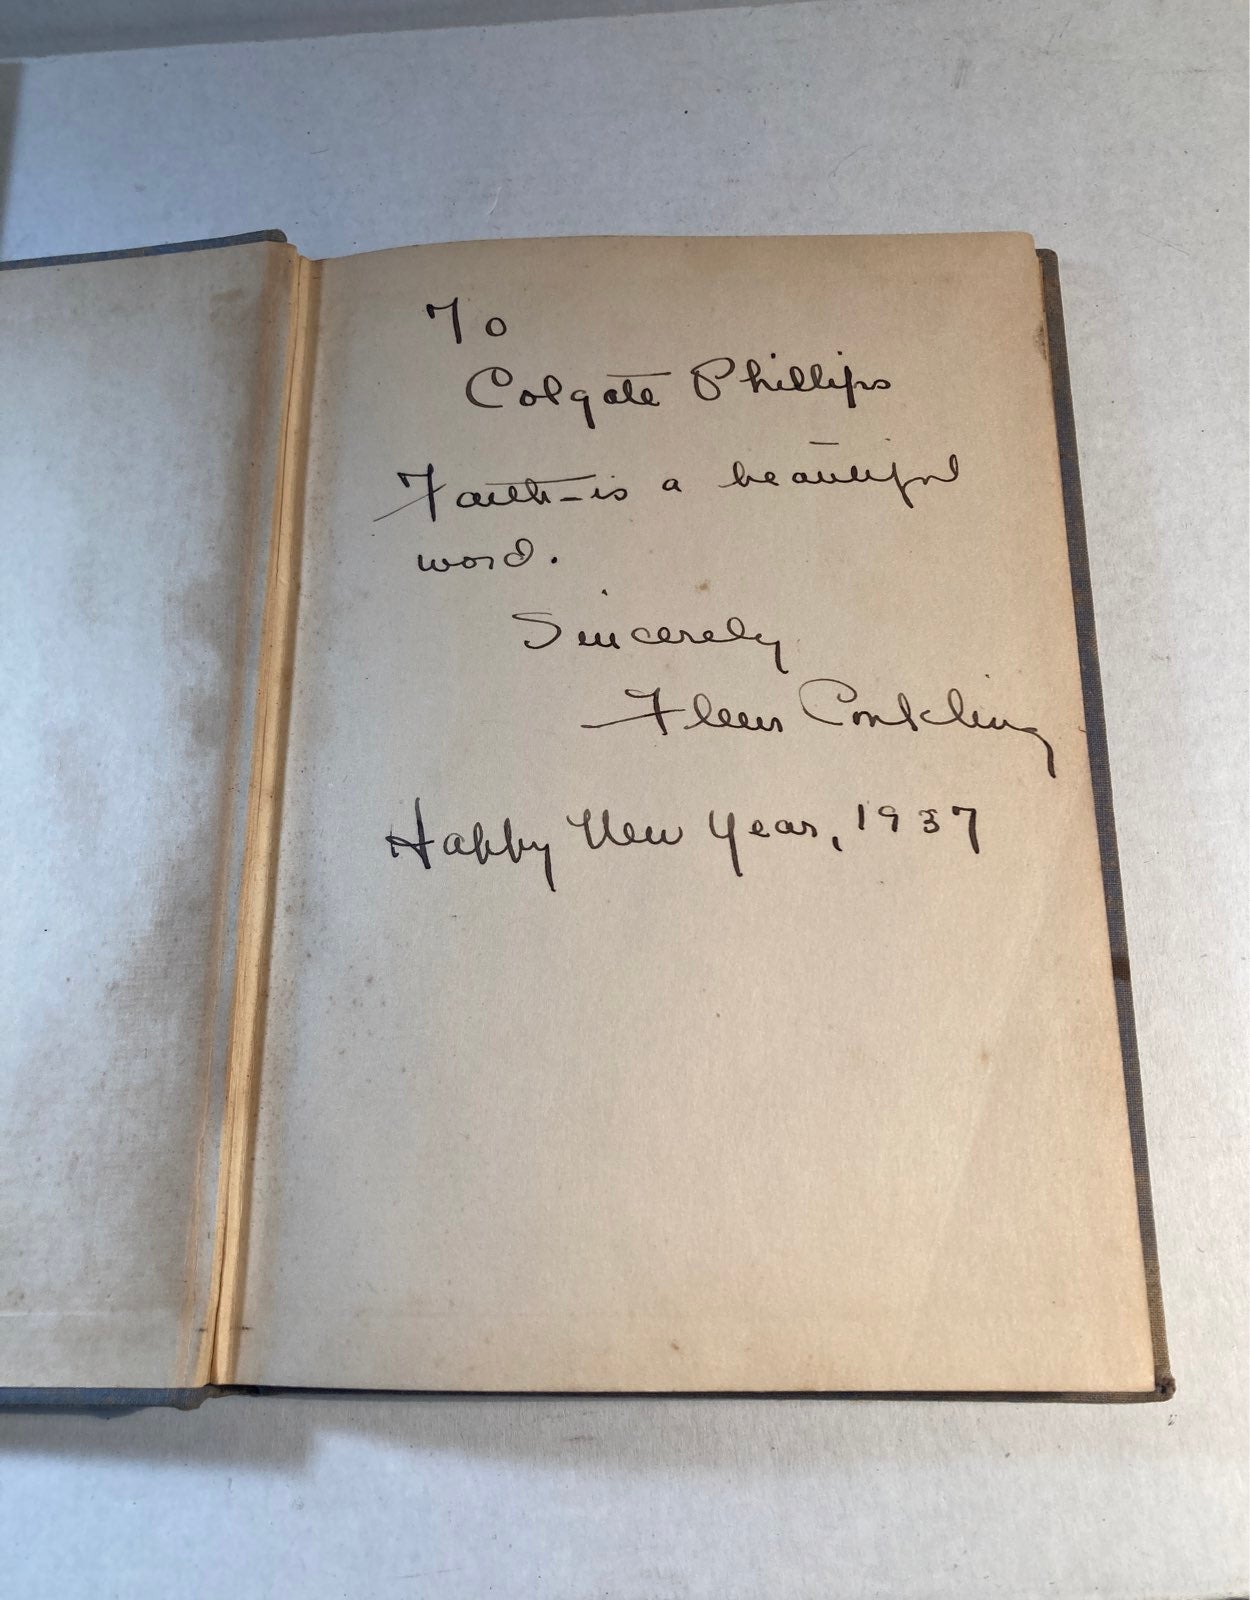 To
Colgate Phillips
Faith-is a beautiful
word.
Sincerely
Fleur Conkling
Happy New Year, 1937